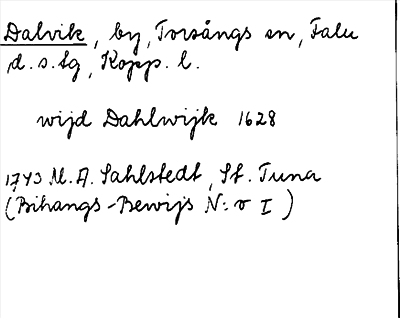 Dalvik, by, Torsångs sn, Falu
d.s. tg, Kopp. l.
wijd Dahlwijk 1628
1743 M.A. Sahlstedt, St. Tuna
(Bihangs-Bewijs N:o I)